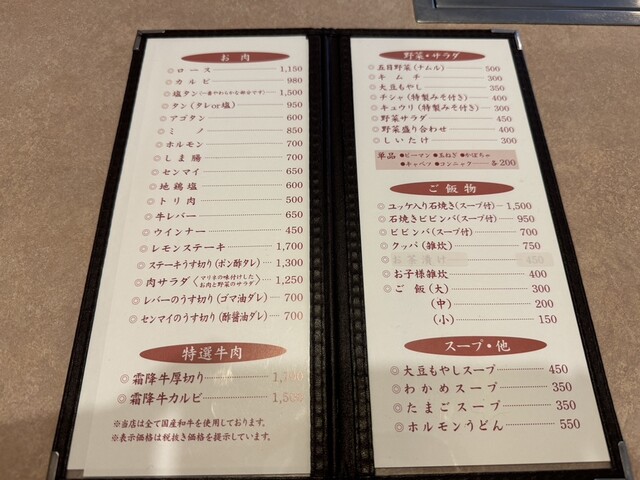 お肉
◎ロース 1,150
◎カルビ 980
◎塩タン(一番やわらかな部分です) 1,500
◎タン(タレor塩) 950
◎アゴタン 600
◎ミノ 850
◎ホルモン 700
◎しま腸 700
◎センマイ 650
◎地鶏塩 600
◎トリ肉 500
◎牛レバー 650
◎ウインナー 450
◎レモンステーキ 1,700
◎ステーキうす切り(ポン酢タレ) 1,300
◎肉サラダ〈マリネの味付けしたお肉と野菜のサラダ〉 1,250
◎レバーのうす切り(ゴマ油ダレ) 700
◎センマイのうす切り(酢醤油ダレ) 700
特選牛肉
◎霜降牛厚切り
◎霜降牛カルビ
※当店は全て国産和牛を使用しております。
※表示価格は税抜き価格を提示しています。
野菜・サラダ
◎五目野菜(ナムル) 500
◎キムチ 300
◎大豆もやし 350
◎チシャ(特製みそ付き) 400
◎キュウリ(特製みそ付き) 300
◎野菜サラダ 450
◎野菜盛り合わせ 400
◎しいたけ 300
単品 ●ピーマン ●玉ねぎ ●かぼちゃ
●キャベツ ●コンニャク 各200
ご飯物
◎ユッケ入り石焼き(スープ付) 1,500
◎石焼きビビンバ(スープ付) 950
◎ビビンバ(スープ付) 700
◎クッパ(雑炊) 750
◎お茶漬け 450
◎お子様雑炊 400
◎ご飯(大) 300
(中) 200
(小) 150
スープ・他
◎大豆もやしスープ 450
◎わかめスープ 350
◎たまごスープ 350
◎ホルモンうどん 550